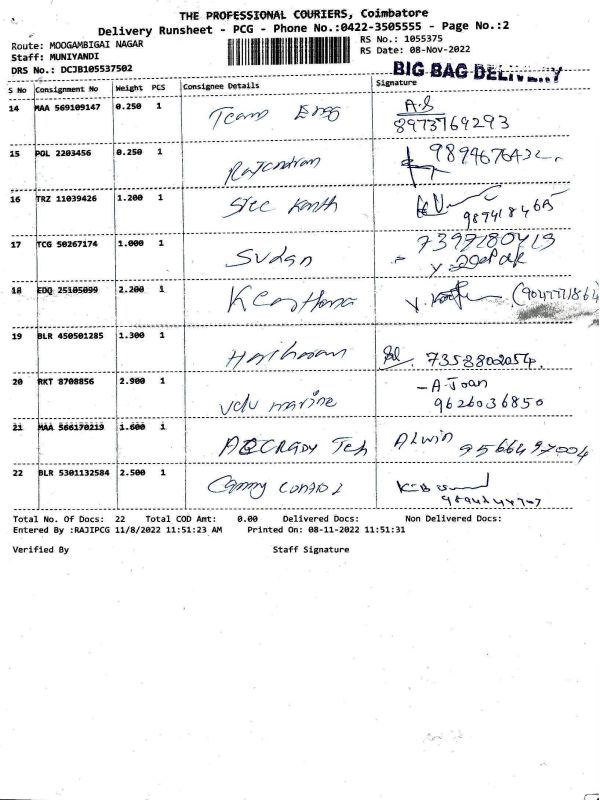 THE PROFESSIONAL COURIERS, Coimbatore
Delivery Runsheet - PCG - Phone No.:0422-3505555 - Page No.:2
Route: MOOGAMBIGAI NAGAR
Staff: MUNIYANDI
DRS No.: DCJB105537502
RS No.: 1055375
RS Date: 08-Nov-2022
BIG BAG DELIVERY
S No Consignment No Weight PCS Consignee Details Signature
14 MAA 569109147 0.250 1 Team Engg A.S
8973769293
15 POL 2203456 0.250 1 Rajendran
16 TRZ 11039426 1.200 1 Sree Kanth
17 TCG 50267174 1.000 1 Sudan
18 EDQ 25105099 2.200 1
19 BLR 450501285 1.300 1 7358802054.
20 RKT 8708856 2.900 1 marine -A.Joan
9626036850
21 MAA 566170219 1.600 1 Tech Alwin 9566497004
22 BLR 5301132584 2.500 1
Total No. Of Docs: 22 Total COD Amt: 0.00 Delivered Docs: Non Delivered Docs:
Entered By :RAJIPCG 11/8/2022 11:51:23 AM Printed On: 08-11-2022 11:51:31
Verified By Staff Signature